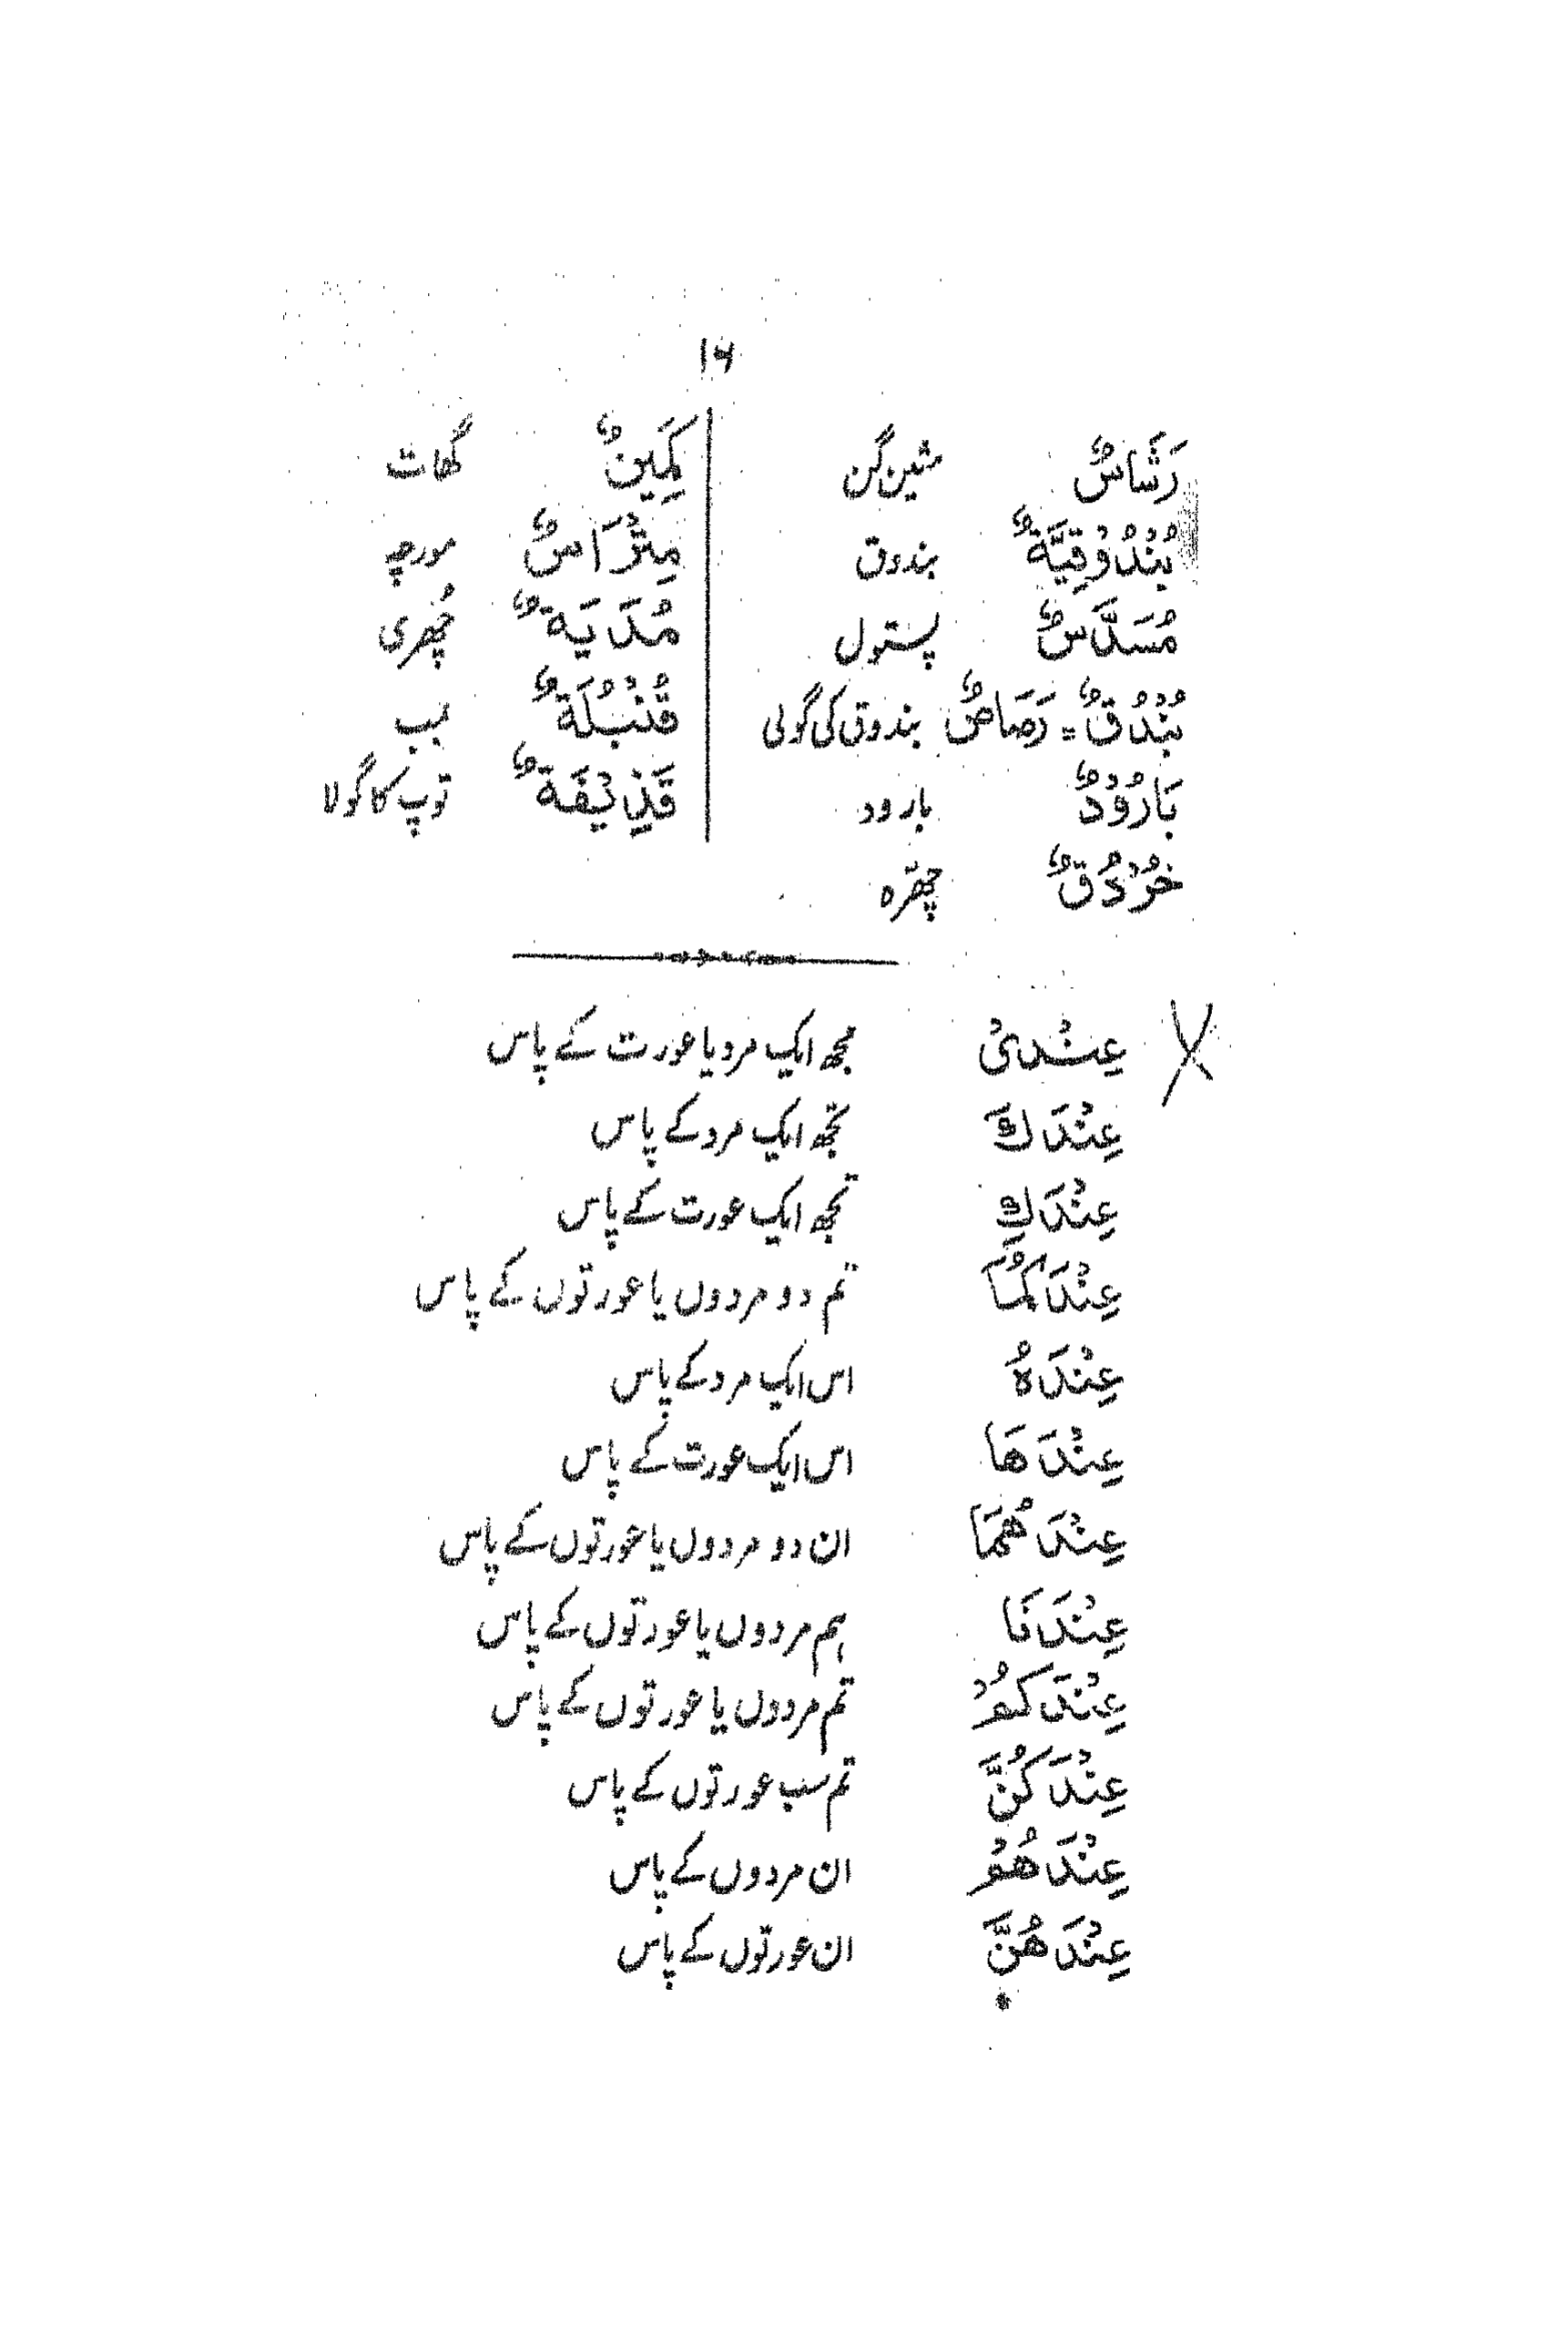 ۱۶
رَشَّاسٌ مشین گن
بُنْدُوْقِيَّةٌ بندوق
مُسَدَّسٌ پستول
بُنْدُقٌ = رَصَاصٌ بندوق کی گولی
بَارُوْدٌ بارود
خُرْدُقٌ چھرّہ
كَمِيْنٌ گھات
مِتْرَاسٌ مورچہ
مُدَيَةٌ چُھری
قُنْبُلَةٌ بمب
قَذِيْفَةٌ توپ کا گولا
عِنْدِیْ مجھ ایک مرد یا عورت کے پاس
عِنْدَكَ تجھ ایک مرد کے پاس
عِنْدَكِ تجھ ایک عورت کے پاس
عِنْدَكُمَا تم دو مردوں یا عورتوں کے پاس
عِنْدَهُ اس ایک مرد کے پاس
عِنْدَهَا اس ایک عورت کے پاس
عِنْدَهُمَا ان دو مردوں یا عورتوں کے پاس
عِنْدَنَا ہم مردوں یا عورتوں کے پاس
عِنْدَكُمْ تم مردوں یا عورتوں کے پاس
عِنْدَكُنَّ تم سب عورتوں کے پاس
عِنْدَهُمْ ان مردوں کے پاس
عِنْدَهُنَّ ان عورتوں کے پاس